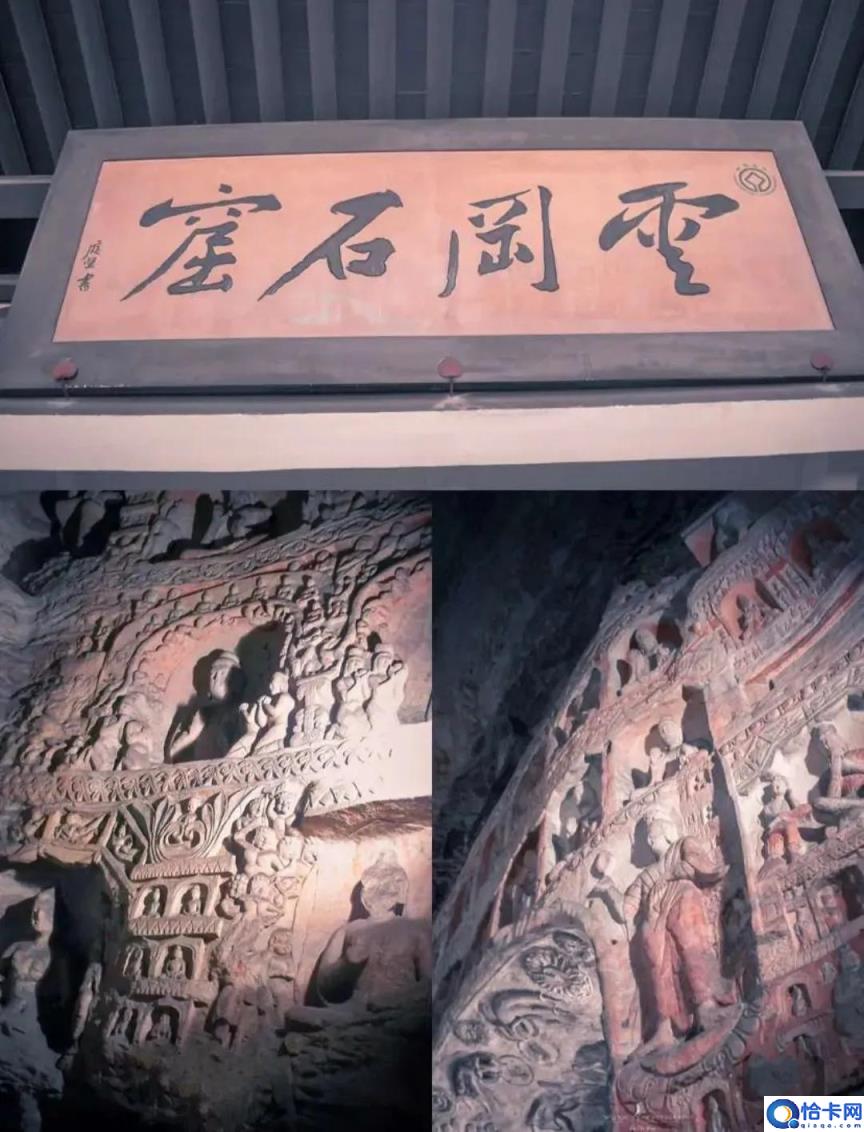 雲岡石窟
庭堅書
恰卡网
qiaqa.com